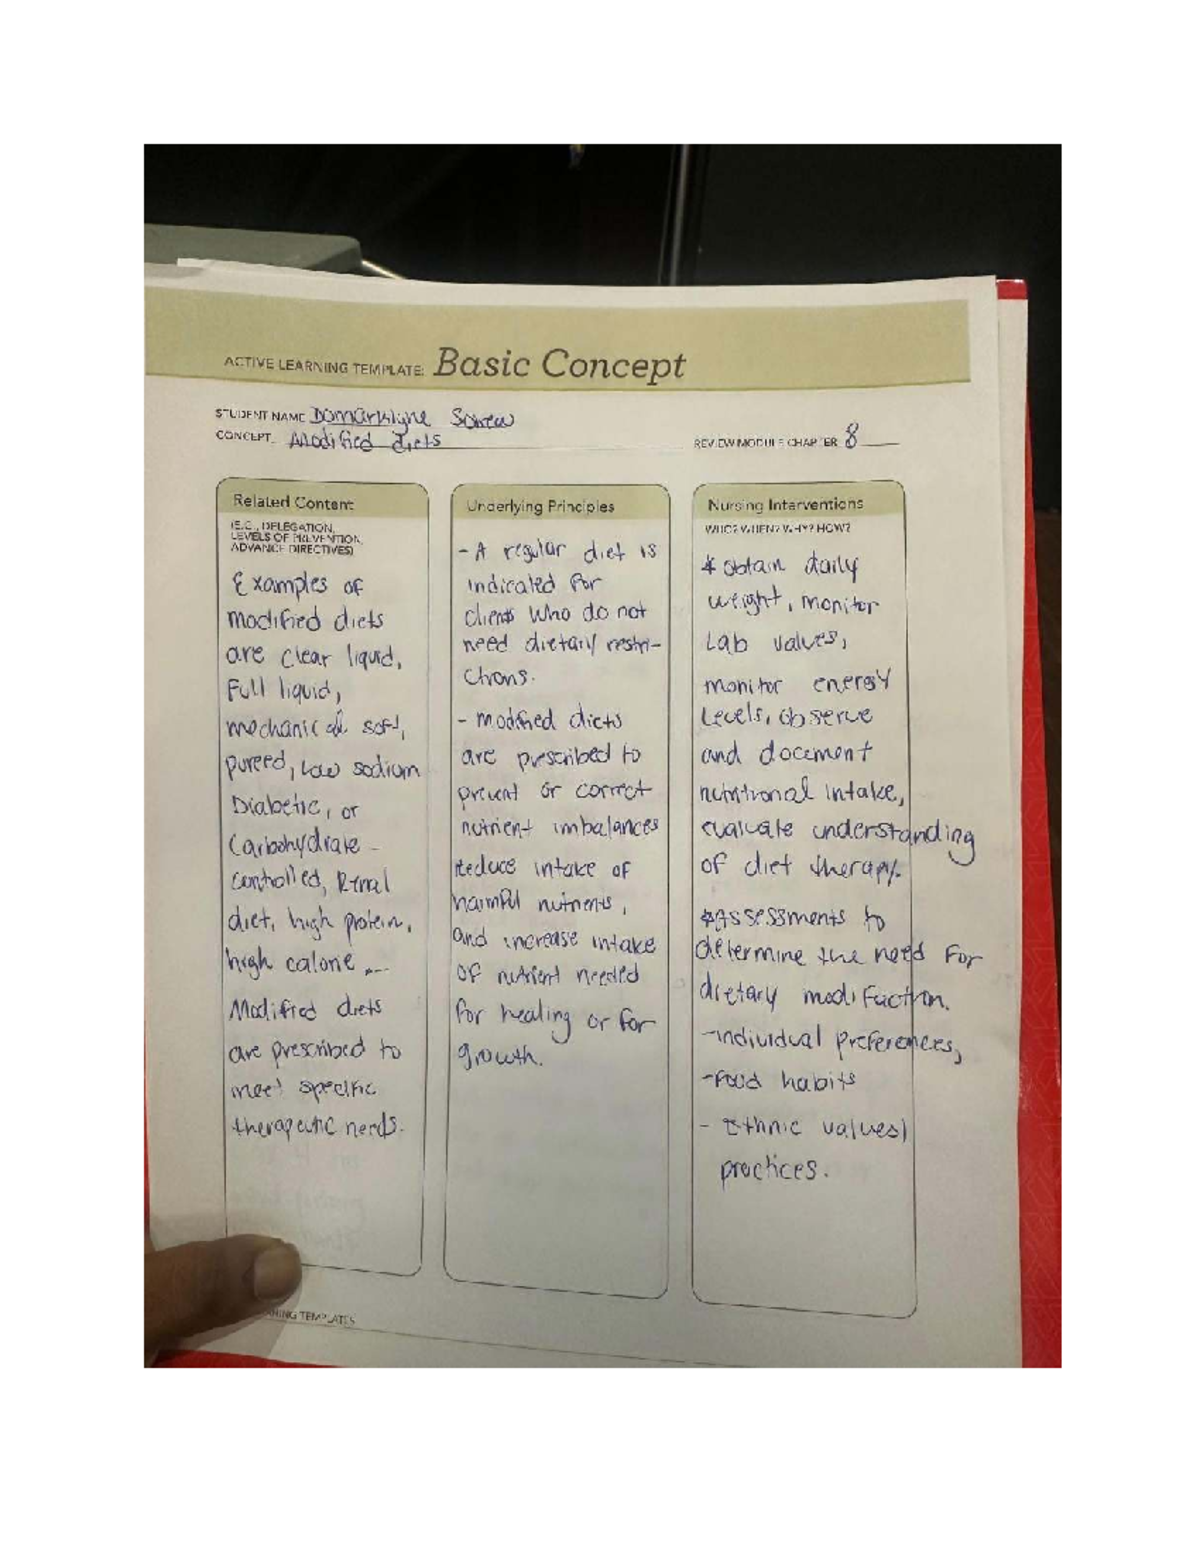 ACTIVE LEARNING TEMPLATE: Basic Concept
STUDENT NAME
CONCEPT Modified diets
REVIEW MODULE CHAPTER 8
Related Content
(E.G., DELEGATION,
LEVELS OF PREVENTION,
ADVANCE DIRECTIVES)
Examples of
modified diets
are clear liquid,
Full liquid,
mechanical soft,
pureed, Low sodium
Diabetic, or
Carbohydrate -
controlled, Renal
diet, high protein,
high calorie ....
Modified diets
are prescribed to
meet specific
therapeutic needs.
Underlying Principles
- A regular diet is
indicated for
clients who do not
need dietary restri-
ctions.
- modified diets
are prescribed to
prevent or correct
nutrient imbalances
Reduce intake of
harmful nutrients,
and increase intake
of nutrient needed
for healing or for
growth.
Nursing Interventions
WHO? WHEN? WHY? HOW?
* obtain daily
weight, monitor
Lab values,
monitor energy
Levels, observe
and document
nutritional intake,
evaluate understanding
of diet therapy.
*Assessments to
determine the need for
dietary modifaction.
-individual preferences,
-food habits
- Ethnic values/
practices.
TEMPLATES